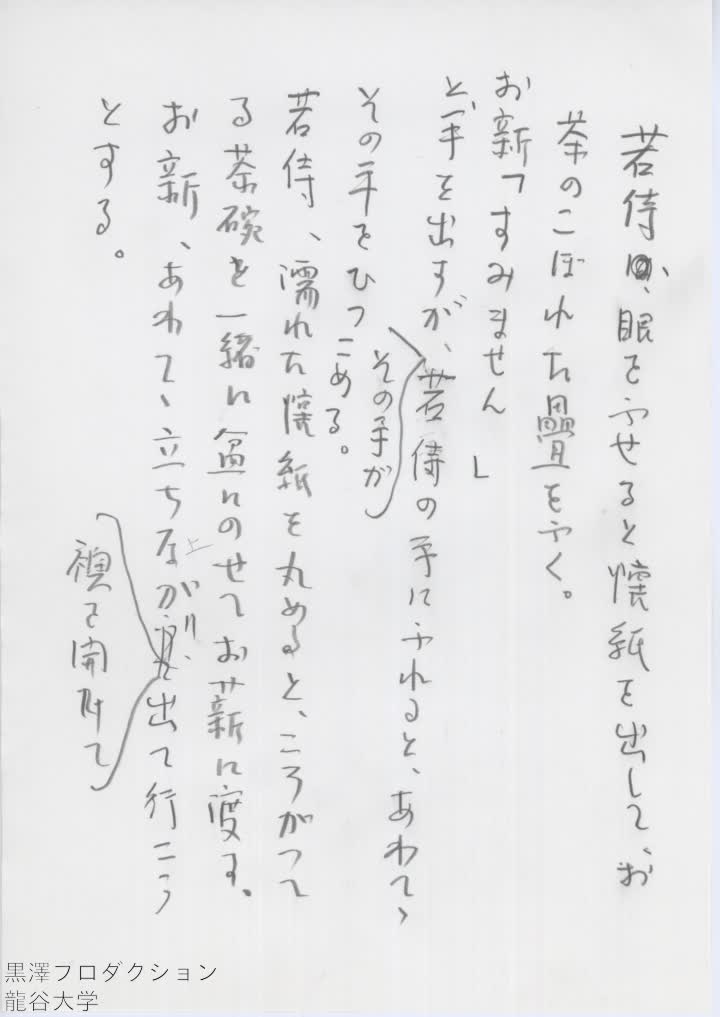 若侍、眼をふせると懐紙を出して、お
茶のこぼれた畳をふく。
お新「すみません」
と、手を出すが、若侍の手にふれると、あわてゝ
その手が
その手をひつこめる。
若侍、濡れた懐紙を丸めると、ころがつて
る茶碗と一緒に盆にのせてお新に渡す。
お新、あわてゝ立ち上り、出て行こう
襖を開けて
とする。
黒澤プロダクション
龍谷大学